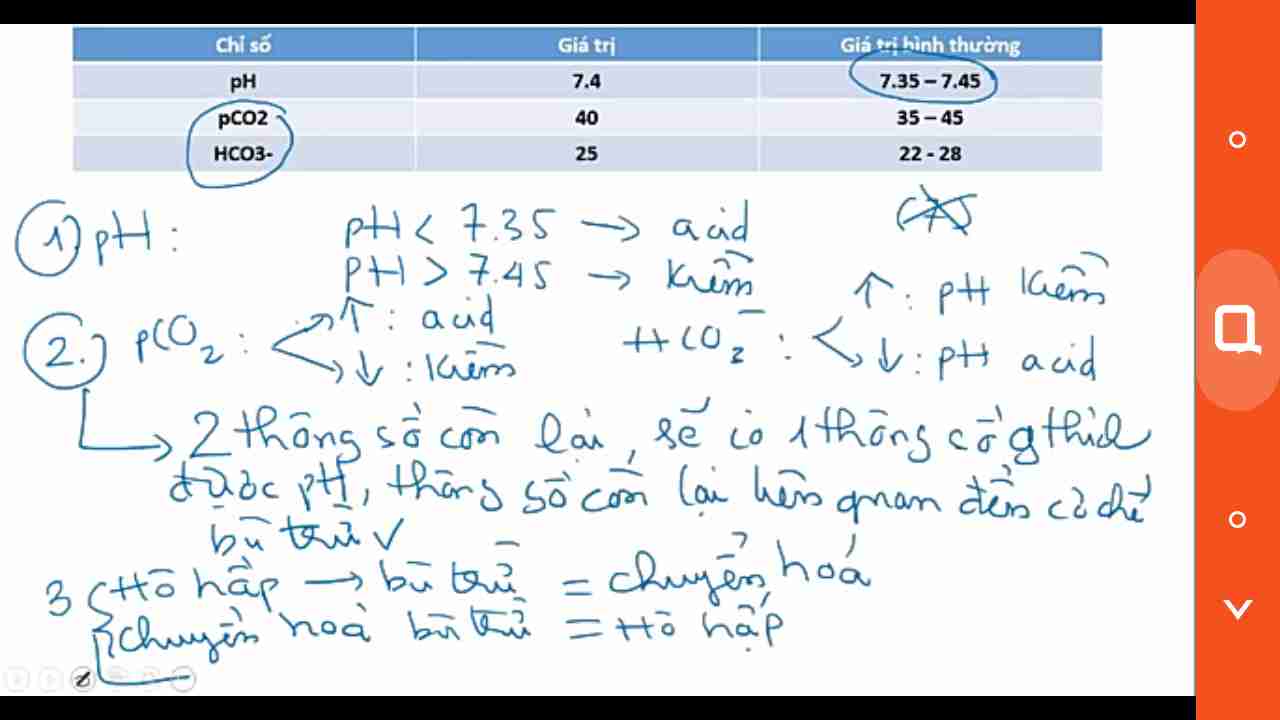 Chỉ số Giá trị Giá trị bình thường
pH 7.4 7.35 – 7.45
pCO2 40 35 – 45
HCO3- 25 22 - 28
1) pH : pH < 7.35 → acid
pH > 7.45 → kiềm
2.) pCO2 : ↑ : acid
↓ : kiềm
HCO3- : ↑ : pH kiềm
↓ : pH acid
2 thông số còn lại, sẽ có 1 thông số gthích
được pH, thông số còn lại liên quan đến cơ chế
bù trừ
3 Hô hấp → bù trừ = chuyển hoá
chuyển hoá bù trừ = Hô hấp